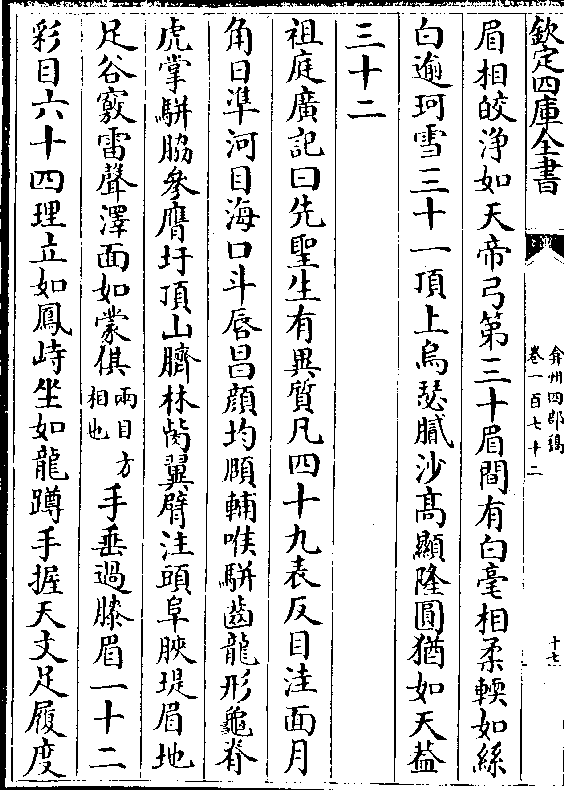 欽定四庫全書
弇州四部稿
卷一百七十二
十七
眉相皎浄如天帝弓第三十眉間有白毫相柔輭如絲
白逾珂雪三十一頂上烏瑟膩沙髙顯隆圓猶如天葢
三十二
祖庭廣記曰先聖生有異質凡四十九表反目洼面月
角日準河目海口斗唇昌顔均頤輔喉駢齒龍形龜脊
虎掌駢脇參膺圩頂山臍林背翼臂注頭阜脥堤眉地
足谷竅雷聲澤面如䝉倛兩目方相也手垂過膝眉一十二
彩目六十四理立如鳳峙坐如龍蹲手握天文足履度